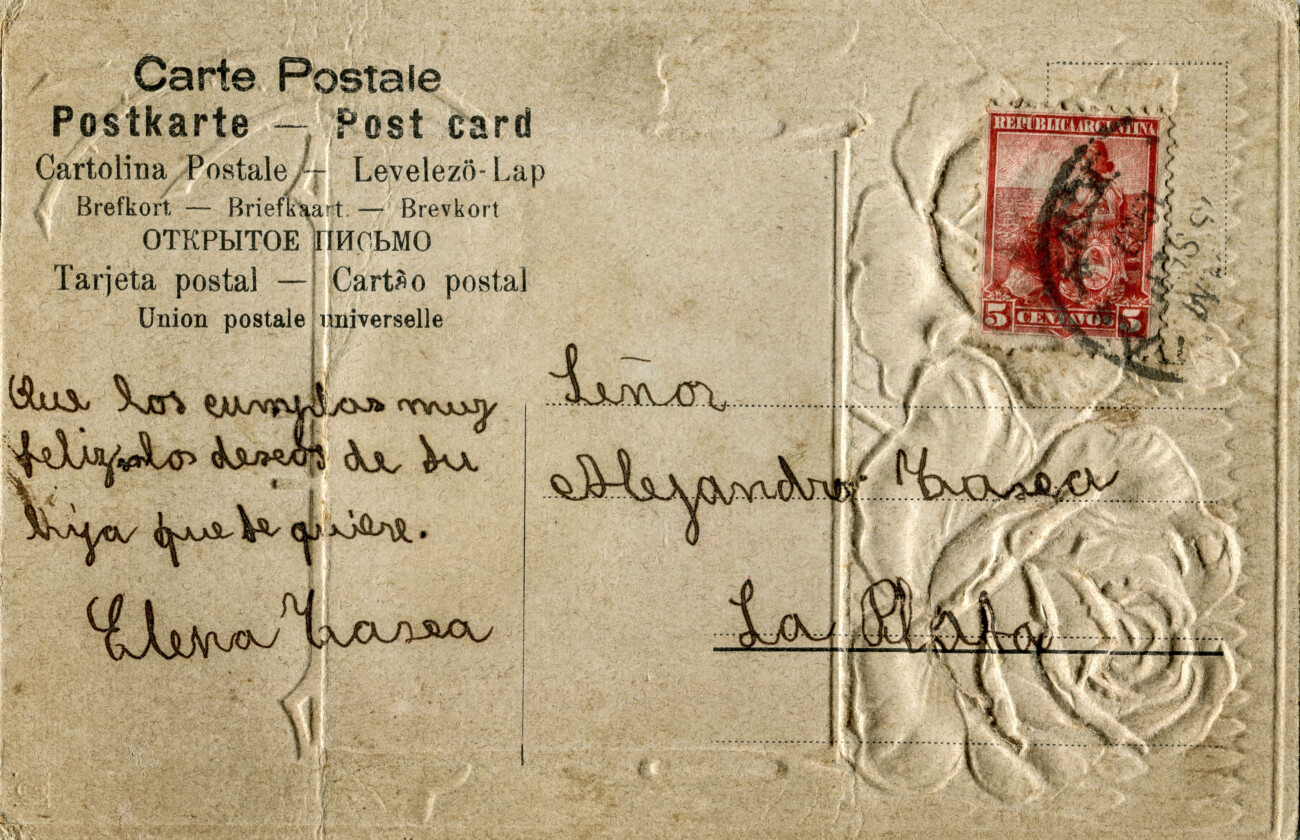 Carte Postale
Postkarte — Post card
Cartolina Postale — Levelezö-Lap
Brefkort — Briefkaart. — Brevkort
ОТКРЫТОЕ ПИСЬМО
Tarjeta postal — Cartão postal
Union postale universelle
REPÚBLICA ARGENTINA
5 CENTAVOS 5
Que los cumplas muy
feliz los deseos de su
hija que te quiere.
Elena
Señor
Alejandro
La Plata